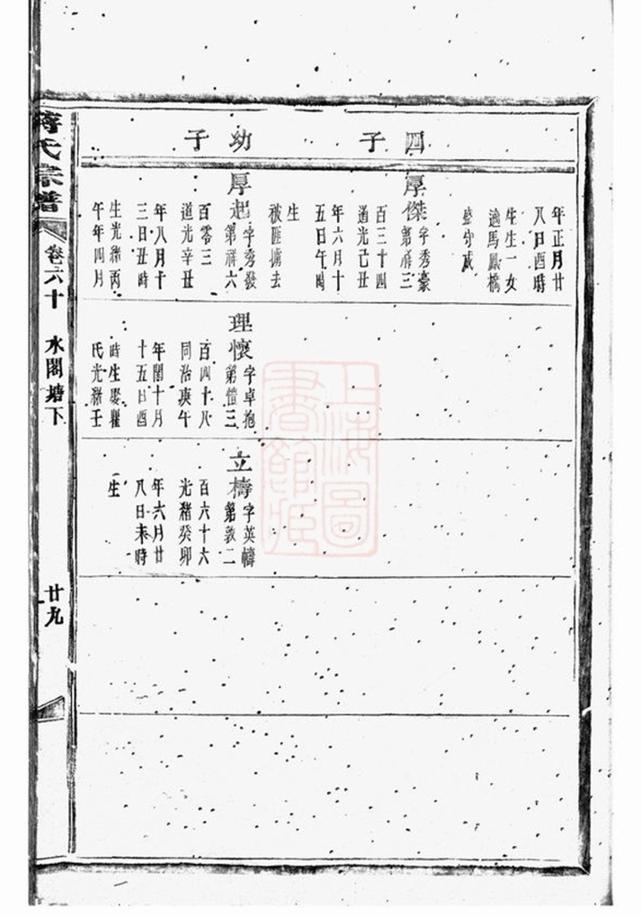 四子
幼子
年正月廿
八日酉時
生生一女
適馬鳳橋
堅守戚
厚傑字秀豪
第祥三
百三十四
道光己丑
年六月十
五日午時
生
被匪擄去
厚起字秀發
第祥六
百零三
道光辛丑
年八月十
三日丑時
生光緒丙
午年四月
理懷字卓抱
第愷三
百四十八
同治庚午
年閏十月
十五日酉
時生娶羅
氏光緒壬
立檮字英幬
第敦二
百六十六
光緒癸卯
年六月廿
八日未時
生
蔣氏宗譜
卷六十
水閣塘下
廿九
上海圖書館藏